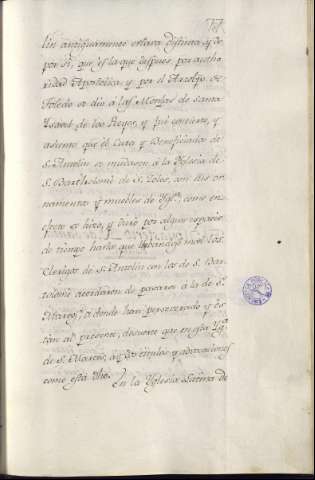 lin antiguamente estava distinta, y de
por sí, que es la que despues por autho-
ridad Apostolica, y por el Arzobpo de
Toledo se dio a las Monjas de Santa
Isavel de los Reyes, y fué concierto, y
asiento que el Cura y Beneficiados de
S. Antolin se mudasen à la Yglesia de
S. Bartholomé de S. Zoles, con sus or-
namentos y muebles de Ygª, como en
efecto se hizo, y duró por algun espacio
de tiempo hasta que los
Clerigos de S. Antolin con los de S. Bar-
tolomé acordaron de pasarse à la de Sⁿ
Marcos, à donde han perseverado y es-
tán al presente, de suerte que en esta Ygª
de S. Marcos, ay dos titulos y advocaciones
como está dho.
En la Yglesia Latina de